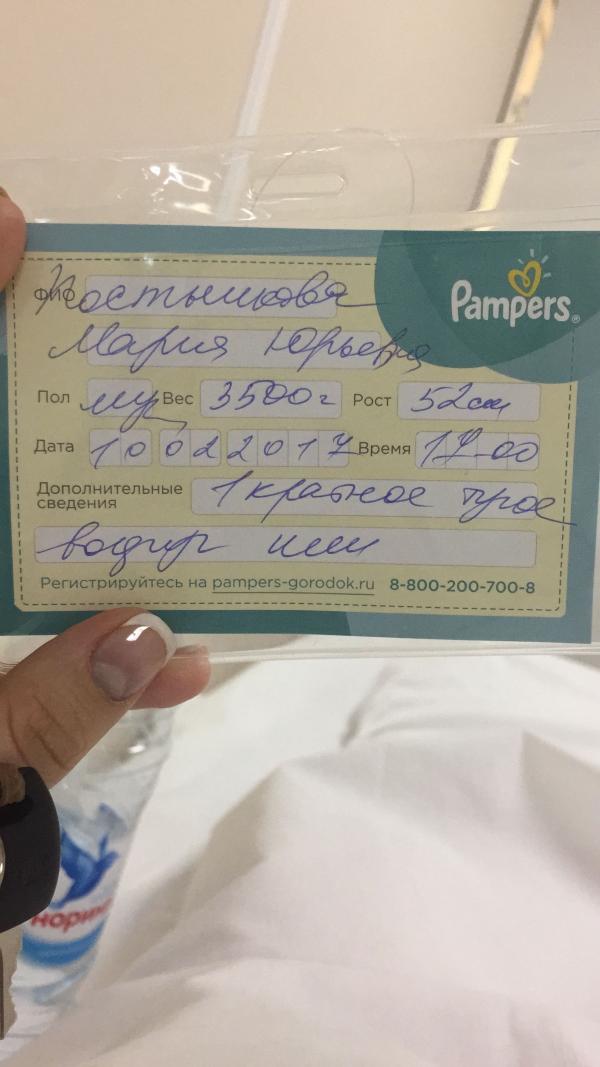 Pampers®
ФИО Костылкова
Мария Юрьевна
Пол муж Вес 3500 г Рост 52 см
Дата 10 02 2017 Время 17-00
Дополнительные сведения 1 кратное
вокруг шеи
Регистрируйтесь на pampers-gorodok.ru 8-800-200-700-8